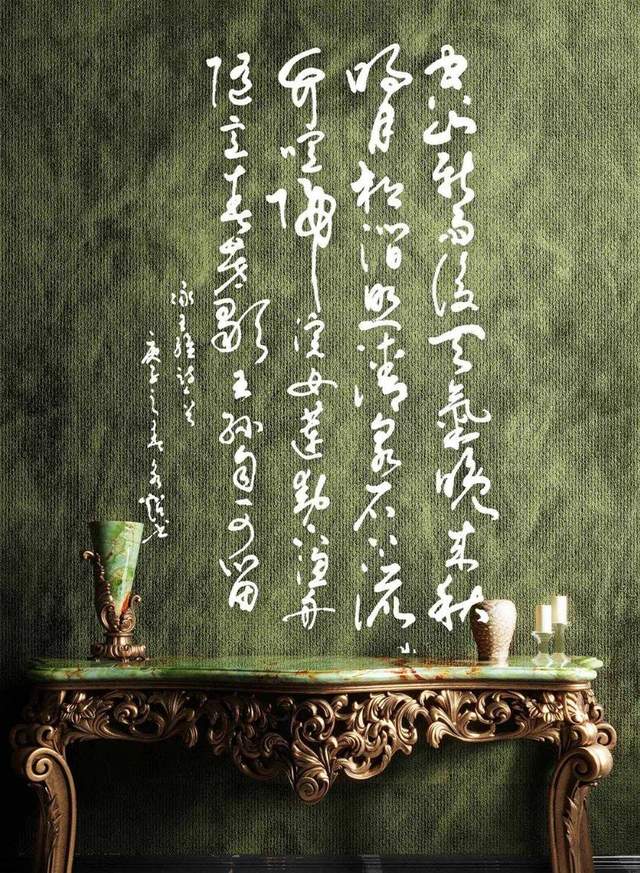 空山新雨後天氣晚來秋
明月松間照清泉石上流
竹喧歸浣女蓮動下漁舟
隨意春芳歇王孫自可留
王維詩
之春